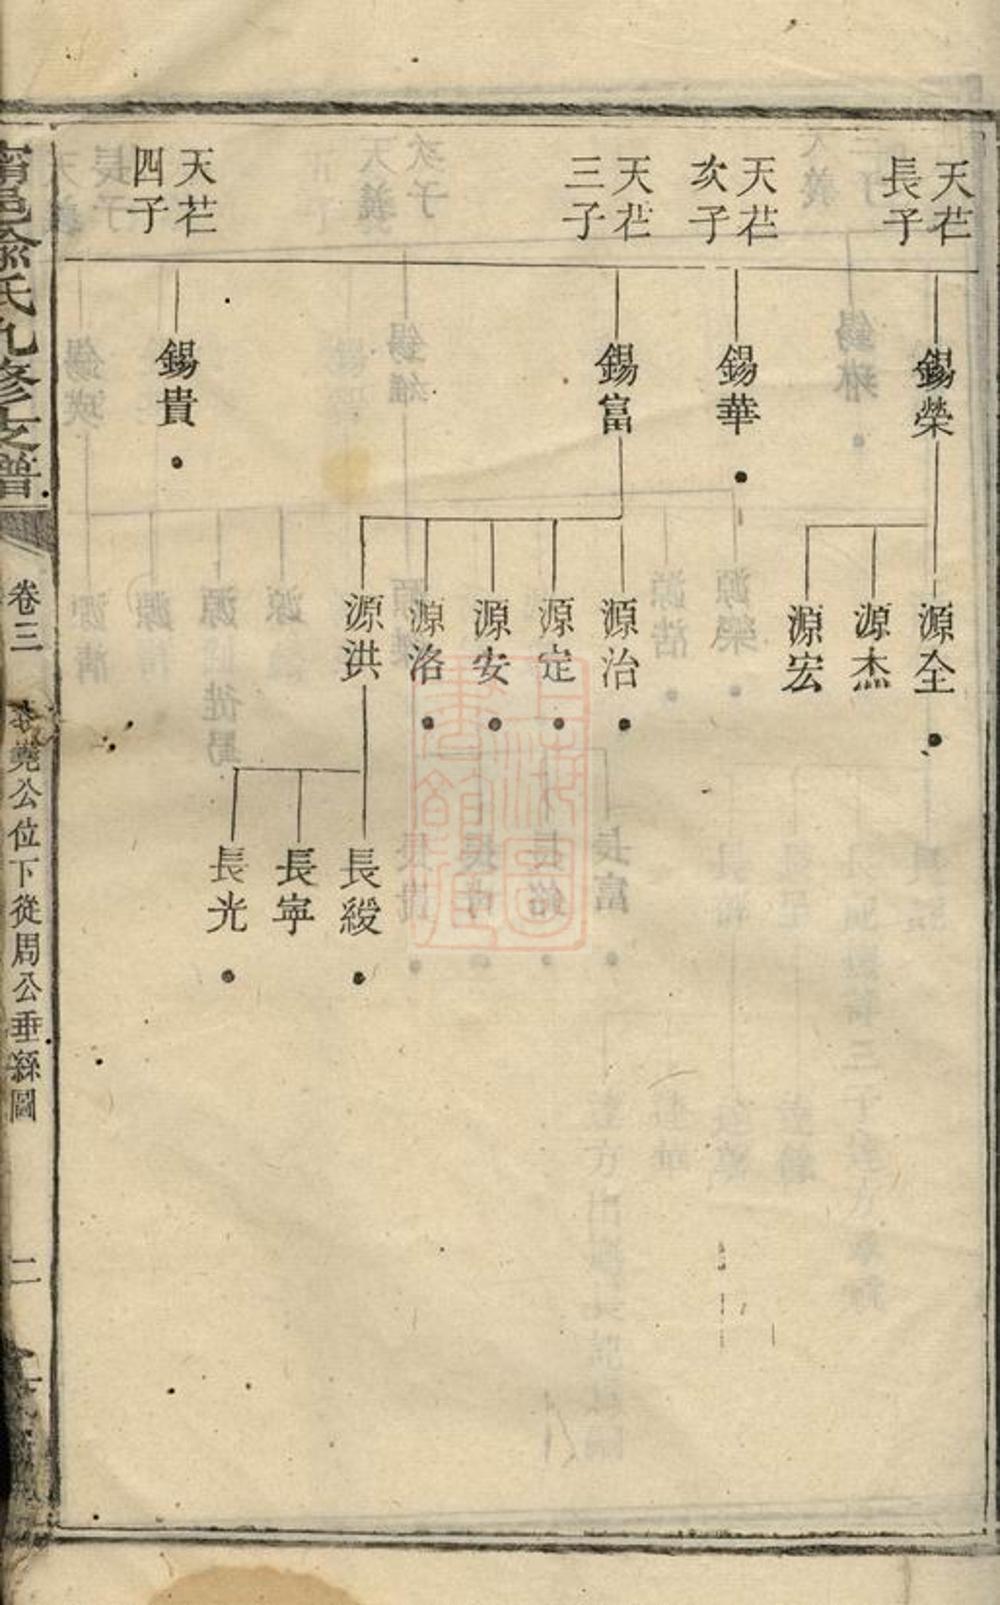 天芒
長子
天芒
次子
天芒
三子
天芒
四子
錫榮
錫華
錫富
錫貴
源全
源杰
源宏
源治
源定
源安
源洛
源洪
長緩
長寧
長光
氏九修支譜
卷三
堯公位下從周公垂絲圖
二